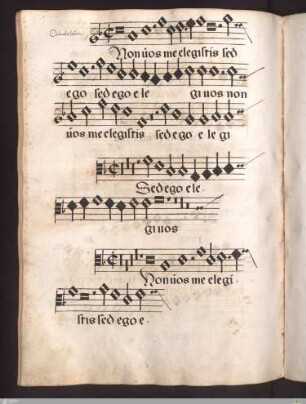 Non uos me elegistis sed
ego sed ego e le gi uos non
uos me elegistis sed ego e le gi
Sed ego e le
gi uos
Non uos me ele gi
stis sed ego e